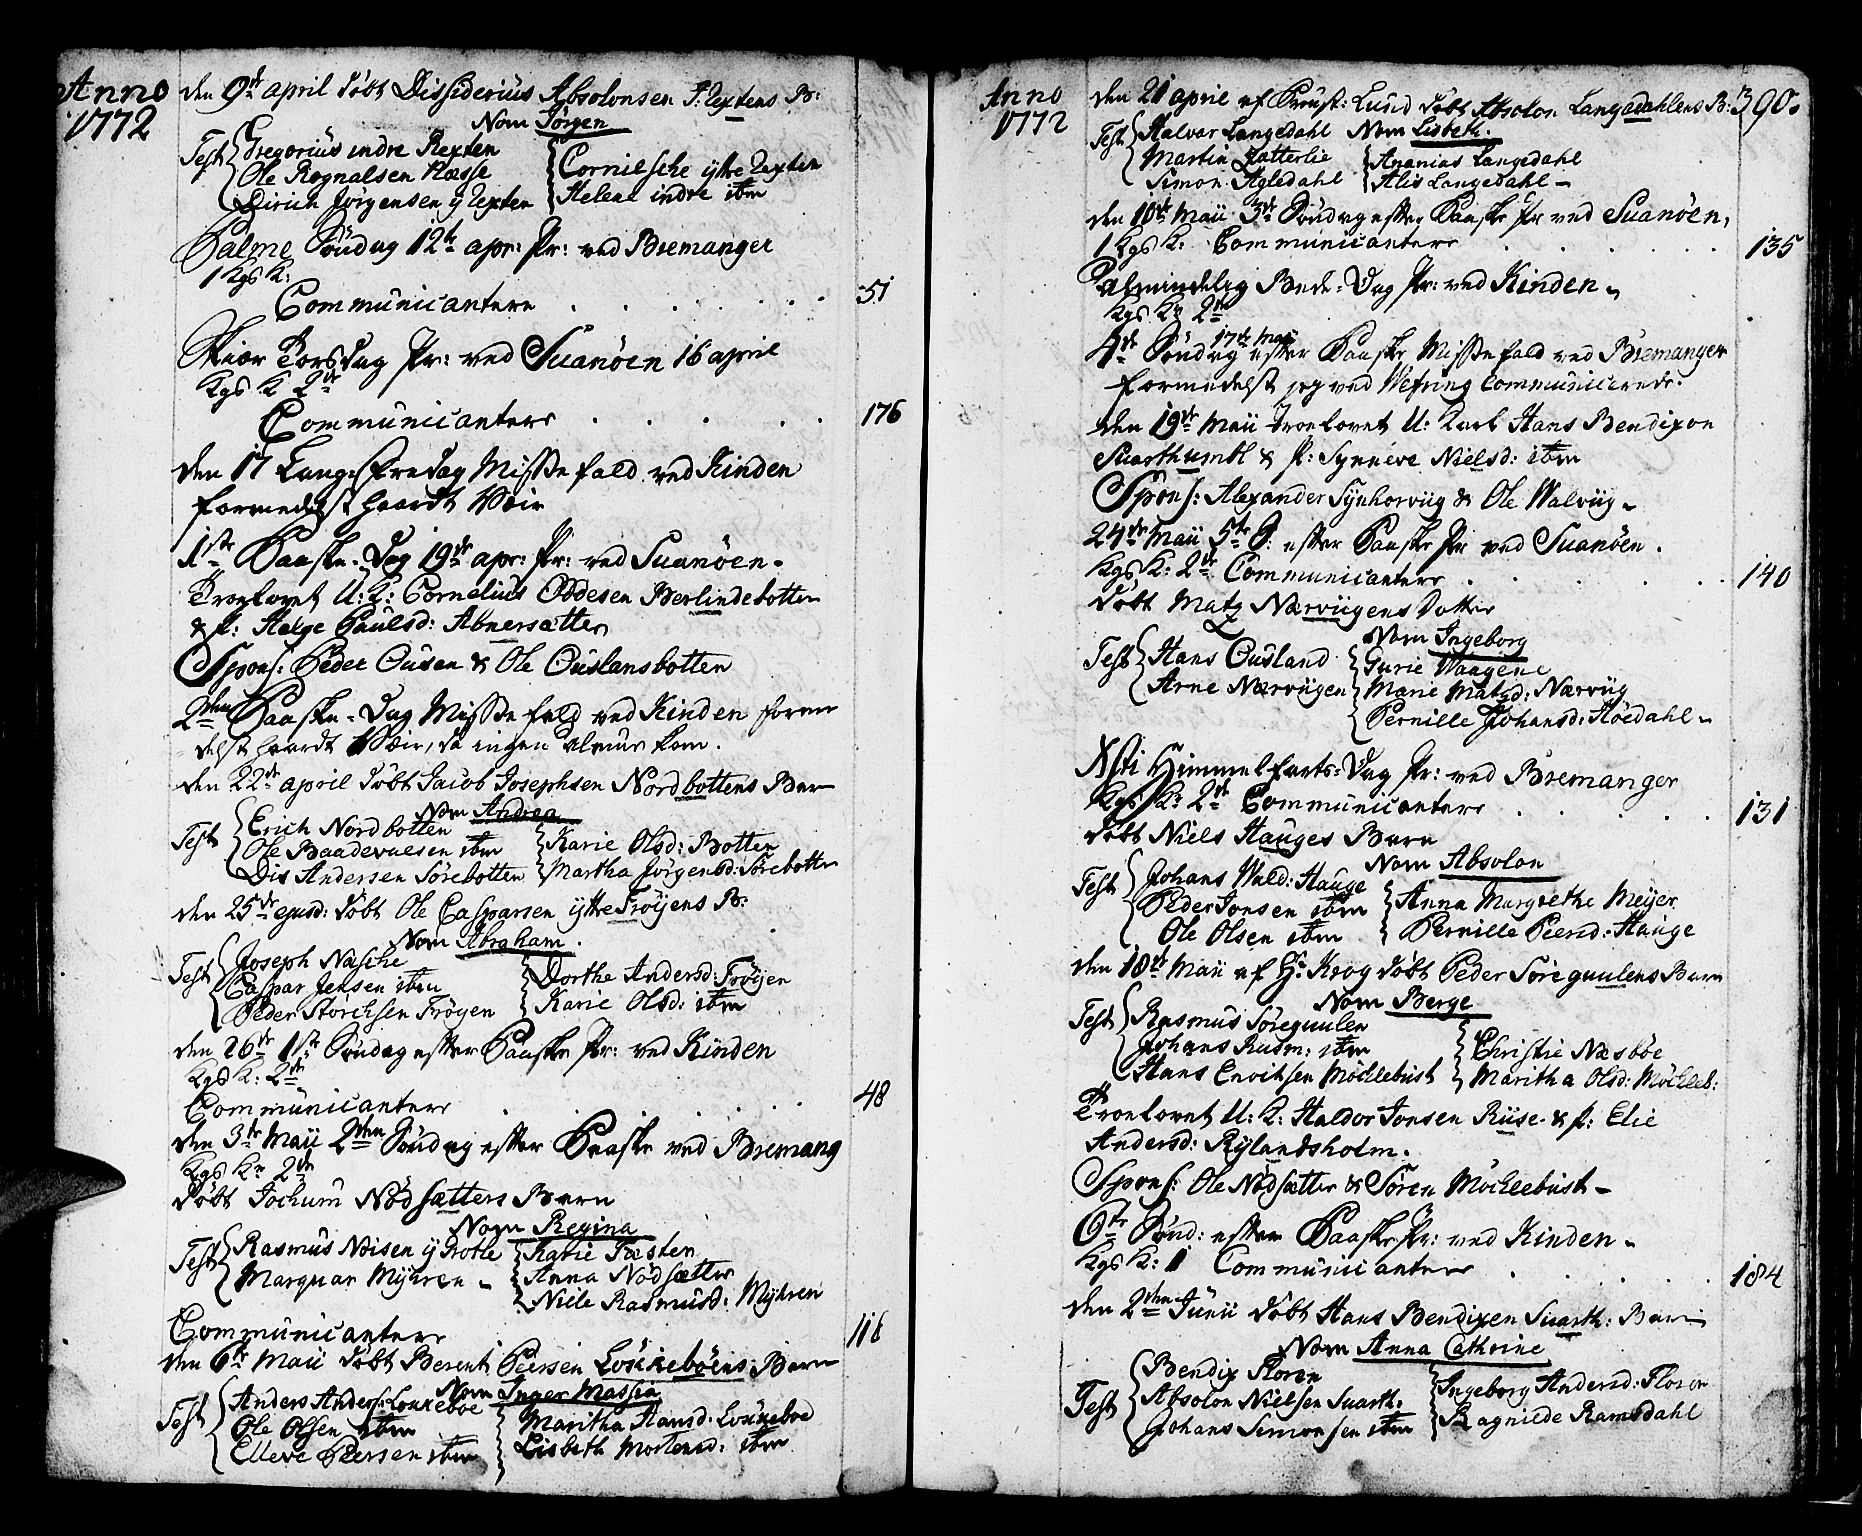 Anno
1772
den 9de april döbt Dissiderius Absolonsen J: Rextens B:
Nom Jørgen
Test Gregorius indre Rexten
Ole Rognalsen Næsse
Dirich Jørgensen y Rexten
Cornelsche ÿttre Rexten
Helene indre ibm
Palme Söndag 12te apr: Pr: ved Bremanger
1 Kgs K:
Communicantere 51
Skiær Torsdag Pr: ved Suanöen 16 april
Kgs K 2de
Communicanters 176
den 17 Lang-Fredag Missefald ved Kinden
formedelst haardt Veir
1ste Paaske-Dag 19de apr: Pr: ved Suanöen.
Troelovet U: K: Cornelius Oddesen Berlindebotten
& P: Helge Paulsd: Abnersætter
Spons: Peder Ousen & Ole Ouslansbotten
2den Paaske-Dag Missefald ved Kinden forme
delst haardt Veir, da ingen almue kom.
den 22de april döbt Jacob Josephsen Nordbottens Barn
Nom Andrea
Test Erich Nordbotten
Ole Baadevaesen ibm
Dis Andersen Sörebotten
Karie Olsd: Botten
Martha Jørgensd: Sörebotten
den 25de ejusd: döbt Ole Casparsen ÿttre Fröÿens B:
Nom Abraham.
Test Joseph Næsche
Caspar Jensen ibm
Peder Störchsen Fröyen
Dorthe Andersd: Fröÿen
Karie Olsd: ibm
den 26de 1ste Söndag efter Paaske Pr: ved Kinden
Kgs K: 2de
Communicanters 48
den 3de Maii 2den Söndag efter Paaske ved Bremang
Kgs K: 2de
döbt Jochum Nödsætters Barn
Nom Regina
Test Rasmus Nøisen ÿ Grotle
Marquar Mÿhren
Karie Tæsten
Anna Nödsætter
Niele Rasmusd: Mÿhren
Communicanters 116
den 6te Maii döbt Berent Peersen Löckeböens Barn
Nom Inger Massia
Test Anders Anders: Lockeboe
Ole Olsen ibm
Elleve Peersen ibm
Maritha Hansd: Lockeboe
Lisbeth Mortensd: ibm
Anno
1772
390.
den 21 april af Provst: Lund döbt Absolon Langedahlens B:
Nom Lisbeth.
Test Halvor Langedahl
Martin Fatterlie
Simon Agledahl
Ananias Langedahl
Alis Langedahl
den 10de Maii 3de Söndag efter Paaske Pr ved Suanöen,
1 Kgs K: Communicanters 135
Almindelig Bede-Dag Pr: ved Kinden
Kgs K: 2de
4de Söndag 17de Maii efter Paaske Missefald ved Bremanger
formedelst jeg ved Wefring communicerede.
den 19de Maii Troelovet U: Karl Hans Bendixen
Suarthumbl & P: Synneve Nielsd: ibm
Spons: Alexander Synhorvüg & Ole Walvüg
24de Maii 5te S: efter Paaske Pr ved Suanöen.
Kgs K: 2de Communicanters 140
döbt Matz Nærvügens Dotter
Nom Ingeborg
Test Hans Ousland
Arne Nærvügen
Gurie Waagene
Marie Matzd: Nærvüg
Pernille Johansd: Höedahl
Xsti Himmelfarts-Dag Pr: ved Bremanger
Kgs K: 2de Communicanters 131
döbt Niels Hauges Barn
Nom Absolon
Test Johans Wald: Hauge
Peder Jonsen ibm
Ole Olsen ibm
Anna Margrethe Meÿer
Pernille Peersd: Hauge
den 18de Maii af Hr Krog döbt Peder Söreguulens Barn
Nom Berge
Test Rasmus Söreguulen
Johans Rasm: ibm
Hans Enochsen Möchlebust
Christie Næsböe
Maritha Olsd: Möchleb:
Troelovet U: K: Haldor Jonsen Riise & P: Elie
Andersd: Rÿlandsholm.
Spons: Ole Nödsætter & Sören Möchlebust
6te Sönd: efter Paaske Pr: ved Kinden
Kgs K: 1 Communicanters 184
den 2den Junii döbt Hans Bendixen Suarth: Barn
Nom Anna Cathrine
Test Bendix Floren
Absolon Nielsen Suarth:
Johans Simonsen ibm
Ingeborg Andersd: Floren
Ragnilde Ramsdahl